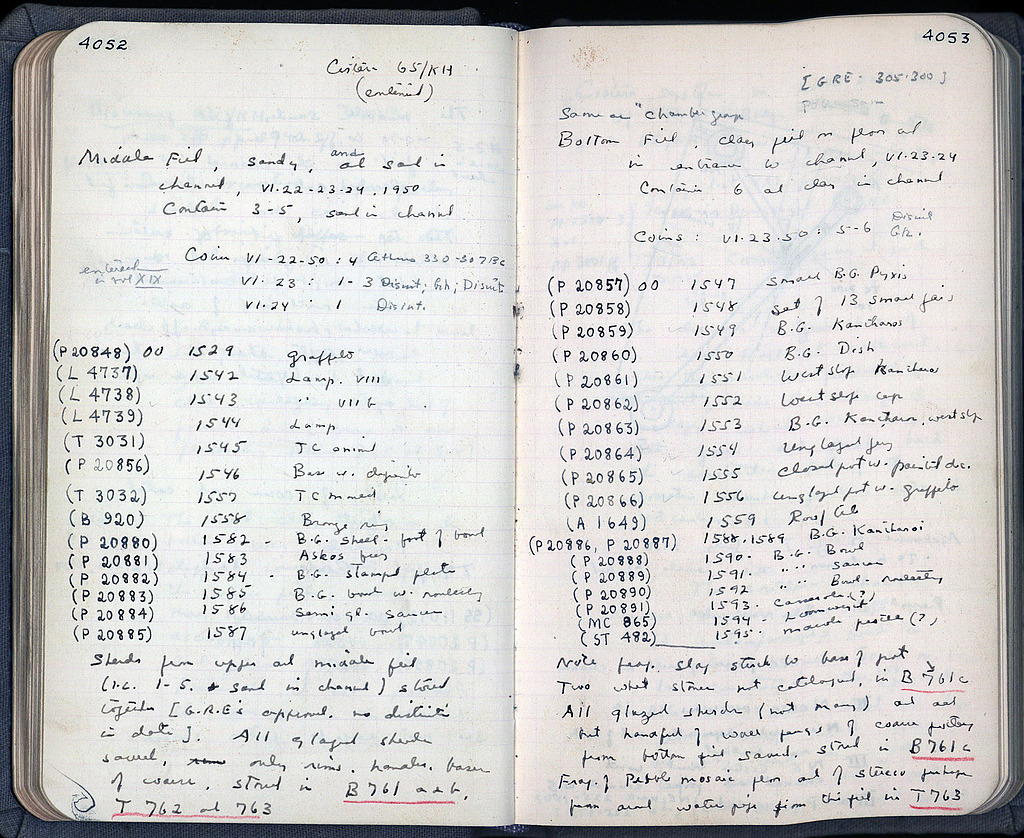 4052
Cistern 65/KH
(continued)
Middle Fill, sandy, and at sand in
channel, VI.22-23-24.1950
Contain 3-5, sand in channel
Coin VI-22-50: 4 Athens 330-307 BC
entered
in vol XIX
VI.23: 1-3 Disint; Gk; Disint
VI.24: 1 Disint.
(P 20848) OU 1529 graffito
(L 4737) 1542 Lamp. VIII
(L 4738) 1543 " VII b
(L 4739) 1544 Lamp
(T 3031) 1545 TC animal
(P 20856) 1546 Base w. dipinto
(T 3032) 1557 TC
(B 920) 1558 Bronze ring
(P 20880) 1582 - B.G. Sherd - foot of bowl
(P 20881) 1583 Askos
(P 20882) 1584 - B.G. stamped plate
(P 20883) 1585 B.G. bowl w. rouletting
(P 20884) 1586 Semi gl. saucer
(P 20885) 1587 unglazed bowl
Sherds from upper and middle fill
(i.e. 1-5. & sand in channel) stored
together [G.R.E's approval. no distinction
in date]. All glazed sherds
saved, only rims, handles, bases
of coarse, stored in B 761 a & b,
T 762 and 763
4053
[GRE: 305-300]
Same as "chamber
Bottom Fill, clay fill on floor and
in entrance to channel, VI.23-24
Contain 6 and clay in channel
Coins: VI.23.50: 5-6 Disint Gk.
(P 20857) OU 1547 Small B.G. Pyxis
(P 20858) 1548 set of 13 small jars
(P 20859) 1549 B.G. Kantharos
(P 20860) 1550 B.G. Dish
(P 20861) 1551 West slope Kantharos
(P 20862) 1552 West slope cup
(P 20863) 1553 B.G. Kantharos, west slope
(P 20864) 1554 unglazed jug
(P 20865) 1555 closed pot w. painted dec.
(P 20866) 1556 unglazed pot w. graffito
(A 1649) 1559 Roof tile
(P 20886, P 20887) 1588.1589 B.G. Kantharoi
(P 20888) 1590 - B.G. Bowl
(P 20889) 1591. " " saucer
(P 20890) 1592 " " Bowl - rouletting
(P 20891) 1593. Casserole (?)
(MC 865) 1594 - Loomweight
(ST 482) 1595 - marble pestle (?)
Note frag. slag stuck to base of pot
Two whet stones not catalogued, in B 761c
All glazed sherds (not many) and all
but handful of coarse pottery
from bottom fill saved, stored in B 761c
Frag. of Pebble mosaic floor and of stucco perhaps
from and water pipe from this fill in T 763